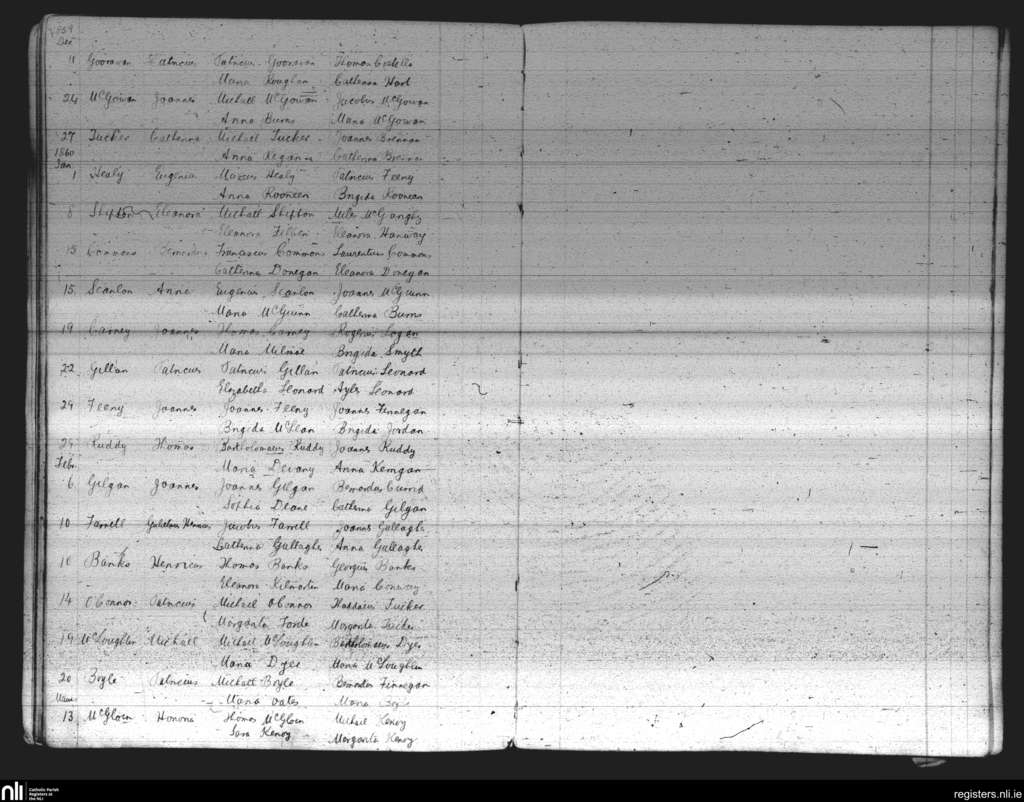 1859
Dec
11 Gooravan Patricius Patricius Gooravan Thomas Costello
Maria Roughan Catherina Hart
24 McGowan Joannes Michael McGowan Jacobus McGowan
Anna Burns Maria McGowan
27 Tucker Catherina Michael Tucker Joannes Brennan
1860 Anna Regan Catherina
Jan
1 Healy Eugenia Marcus Healy Patricius Feeny
Anna Rooneen Brigida Rooneen
8 Shipton Eleanora Michael Shipton Miles
Eleanora Eleanora Hanway
15 Commons Franciscus Commons Laurentius Commons
Catherina Donegan Eleanora Donegan
15 Scanlon Anna Eugenius Scanlon Joannes McGuinn
Maria McGuinn Catherina Burns
19 Carney Joannes Thomas Carney Rogerius Logan
Maria Brigida Smyth
22 Gillan Patricius Patricius Gillan Patricius Leonard
Elizabetha Leonard Leonard
29 Feeny Joannes Joannes Feeny Joannes Finnegan
Brigida McLean Brigida Jordan
29 Ruddy Thomas Bartholomaeus Ruddy Joannes Ruddy
Febr. Maria Devany Anna Kerrigan
6 Gilgan Joannes Joannes Gilgan Bernardus Currid
Sophia Deane Catherina Gilgan
10 Farrell Gulielmus Henricus Jacobus Farrell Joannes Gallagher
Catherina Gallagher Anna Gallagher
10 Banks Henricus Thomas Banks Georgius Banks
Eleanora Kilmartin Maria Conway
14 O'Connor Patricius Michael O'Connor Thaddaeus Tucker
Margarita Forde Margarita Tucker
19 McLoughlin Michael Michael McLoughlin Bartholomaeus Dyer
Maria Dyer Maria McLoughlin
20 Boyle Patricius Michael Boyle Bernardus Finnegan
Maria Oates Maria
13 McGloin Honoria Thomas McGloin Michael Kenoy
Sara Kenoy Margarita Kenoy
nli Catholic Parish
Registers at
the NLI
registers.nli.ie